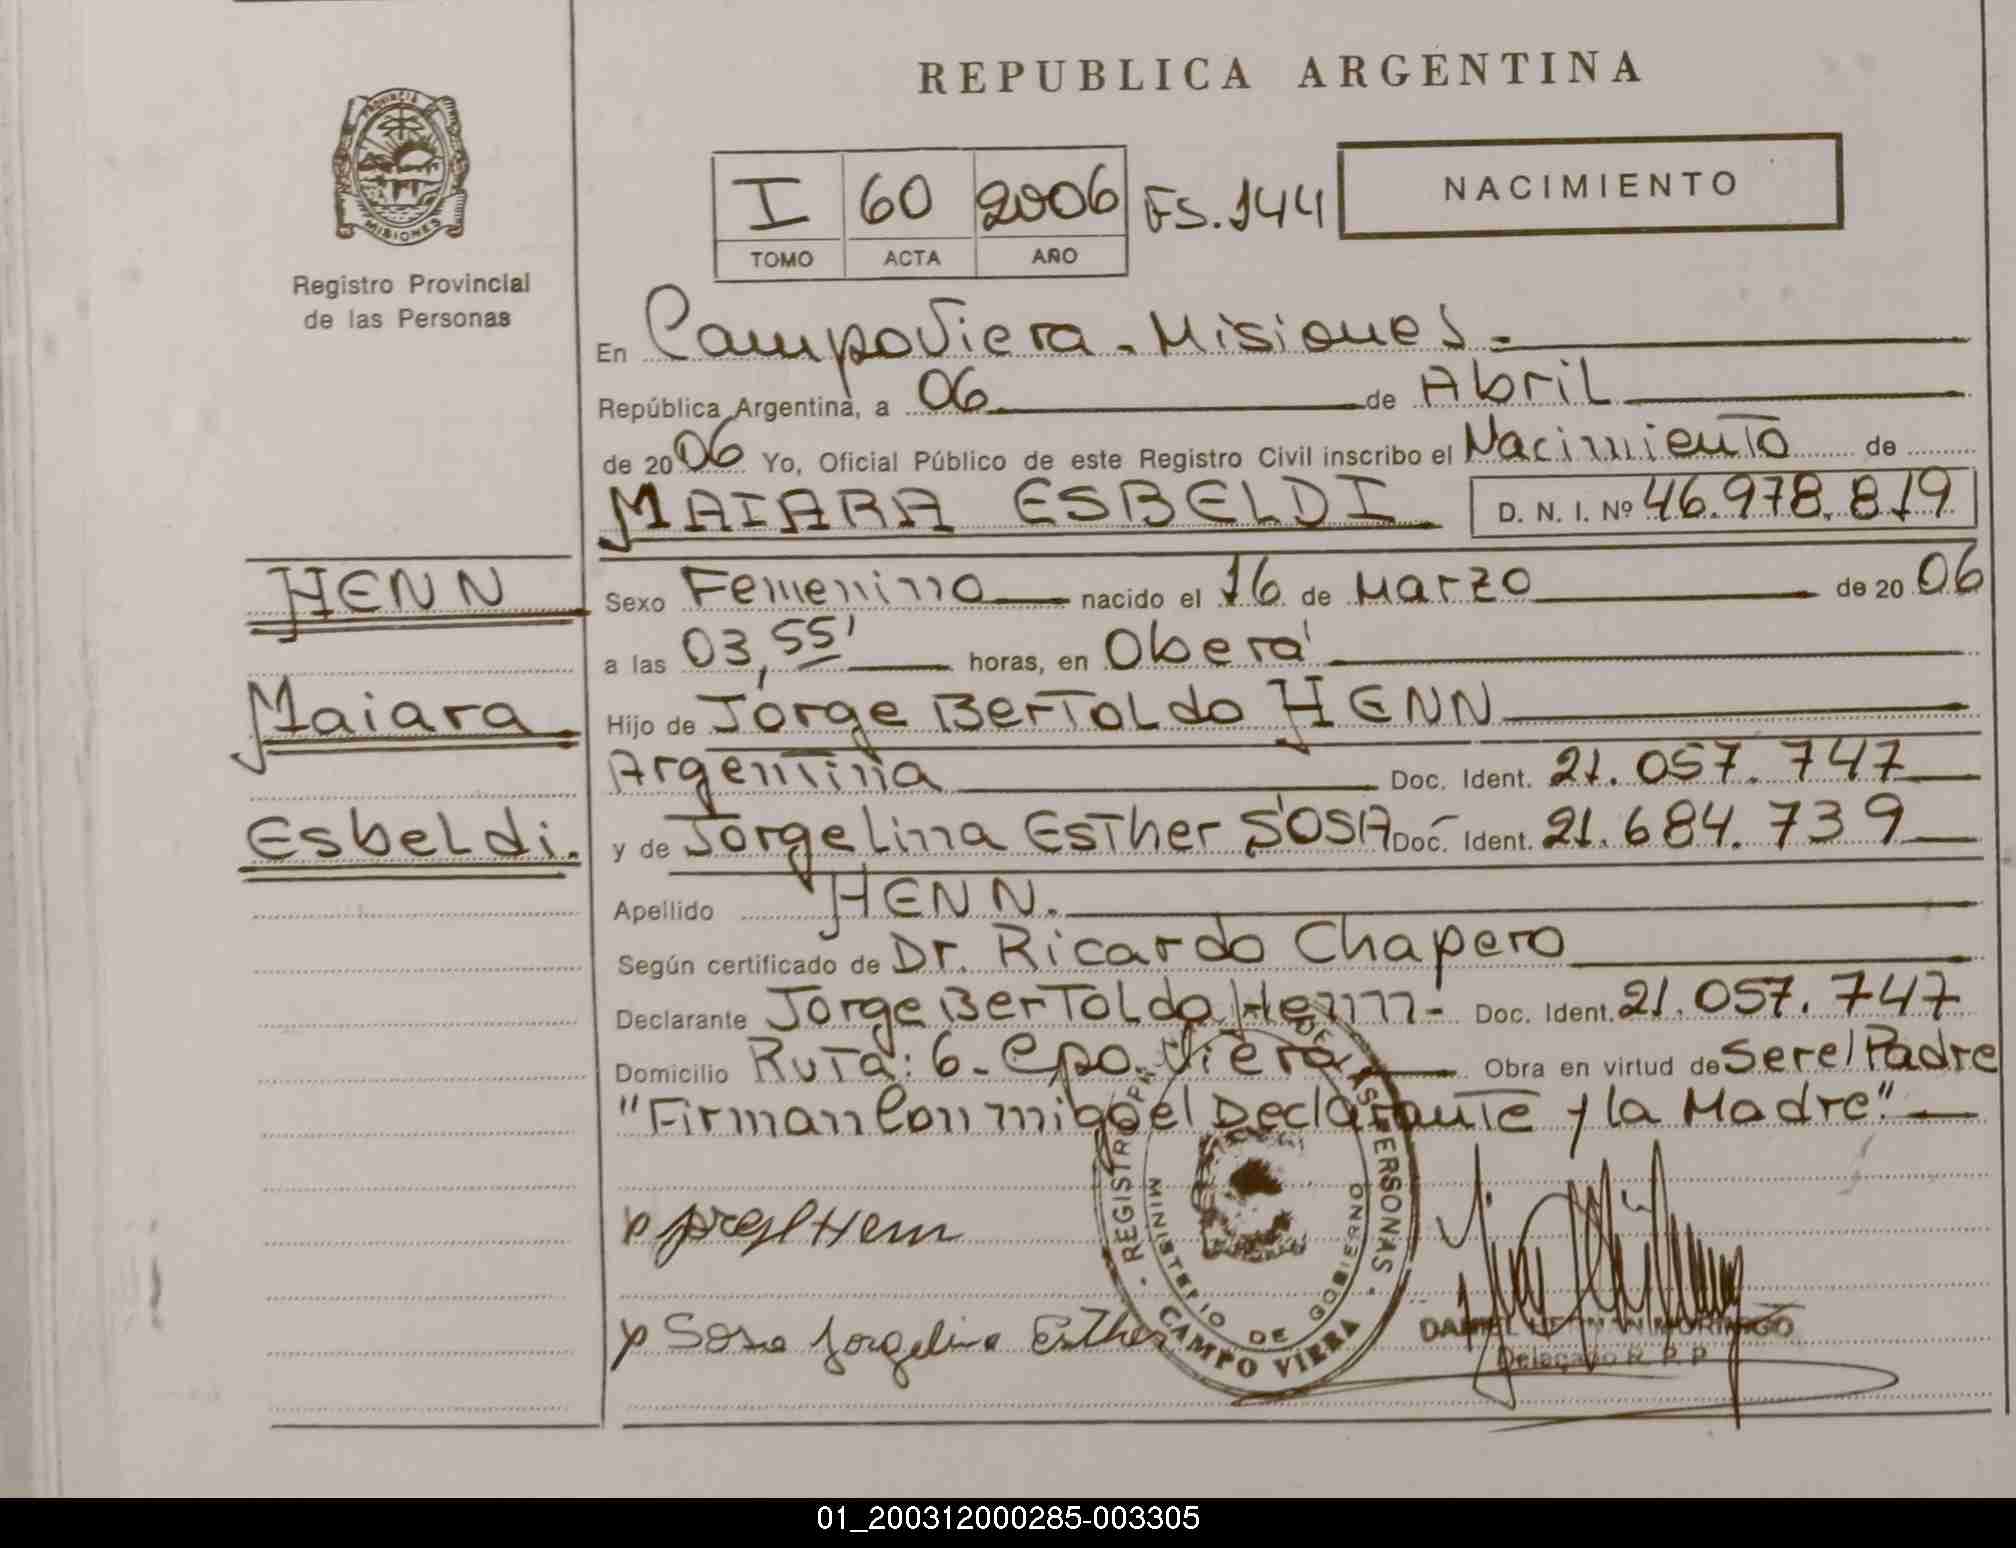 REPUBLICA ARGENTINA
PROVINCIA
MISIONES
Registro Provincial
de las Personas
I 60 2006 Fs. 144
TOMO ACTA AÑO
NACIMIENTO
En CampoViera - Misiones.=
República Argentina, a 06 de Abril
de 2006 Yo, Oficial Público de este Registro Civil inscribo el Nacimiento de
MAIARA ESBELDI D. N. I. Nº 46.978.819
HENN
Maiara
Esbeldi.
Sexo Femenino nacido el 16 de Marzo de 2006
a las 03,55' horas, en Oberá
Hijo de Jorge Bertoldo HENN
Argentina Doc. Ident. 21.057.747
y de Jorgelina Esther SOSA Doc. Ident. 21.684.739
Apellido HENN.
Según certificado de Dr. Ricardo Chapero
Declarante Jorge Bertoldo Henn- Doc. Ident. 21.057.747
Domicilio Ruta: 6- Cpo. Viera Obra en virtud de Ser el Padre
"Firman Conmigo el Declarante y la Madre".
Henn
Sosa Jorgelina Esther
REGISTRO DE LAS PERSONAS
MINISTERIO DE GOBIERNO
CAMPO VIERA
Delegado R. P. P.
01_200312000285-003305